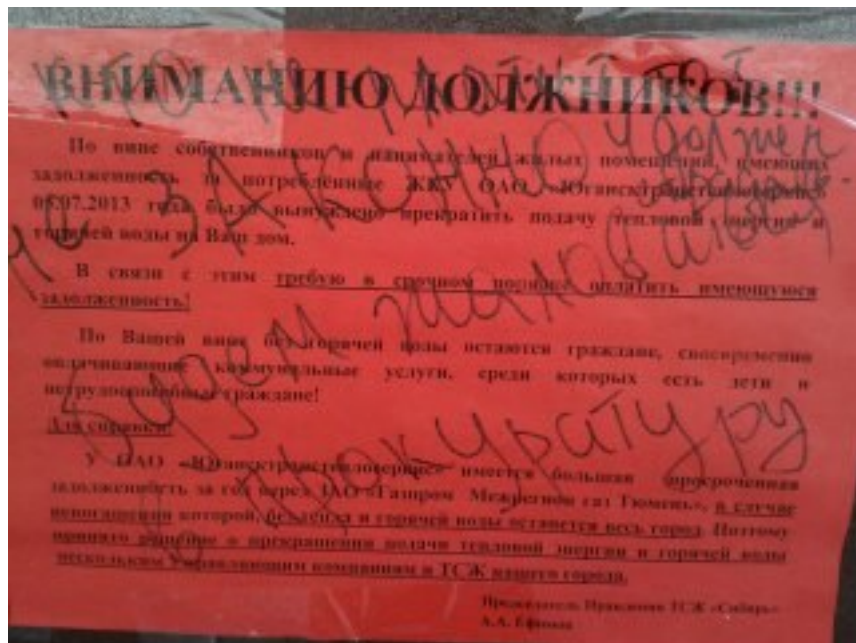 ВНИМАНИЮ ДОЛЖНИКОВ!!!
По вине собственников и нанимателей жилых помещений, имеющих
задолженность за потребленные ЖКУ ОАО «Юганsктранстеплосервис»
05.07.2013 года было вынуждено прекратить подачу тепловой энергии и
горячей воды на Ваш дом.
В связи с этим требую в срочном порядке оплатить имеющуюся
задолженность!
По Вашей вине без горячей воды остаются граждане, своевременно
оплачивающие коммунальные услуги, среди которых есть дети и
нетрудоспособные граждане!
Для справки:
У ОАО «Югансктранстеплосервис» имеется большая просроченная
задолженность за газ перед ЗАО «Газпром Межрегион газ Тюмень», в случае
непогашения которой, без тепла и горячей воды останется весь город. Поэтому
принято решение о прекращении подачи тепловой энергии и горячей воды
нескольким Управляющим компаниям и ТСЖ нашего города.
Председатель Правления ТСЖ «Сибирь»
А.А. Ефимов
кто не платит тот
и должен
не ЗАКОННО
Будем жаловаться
в прокуратуру